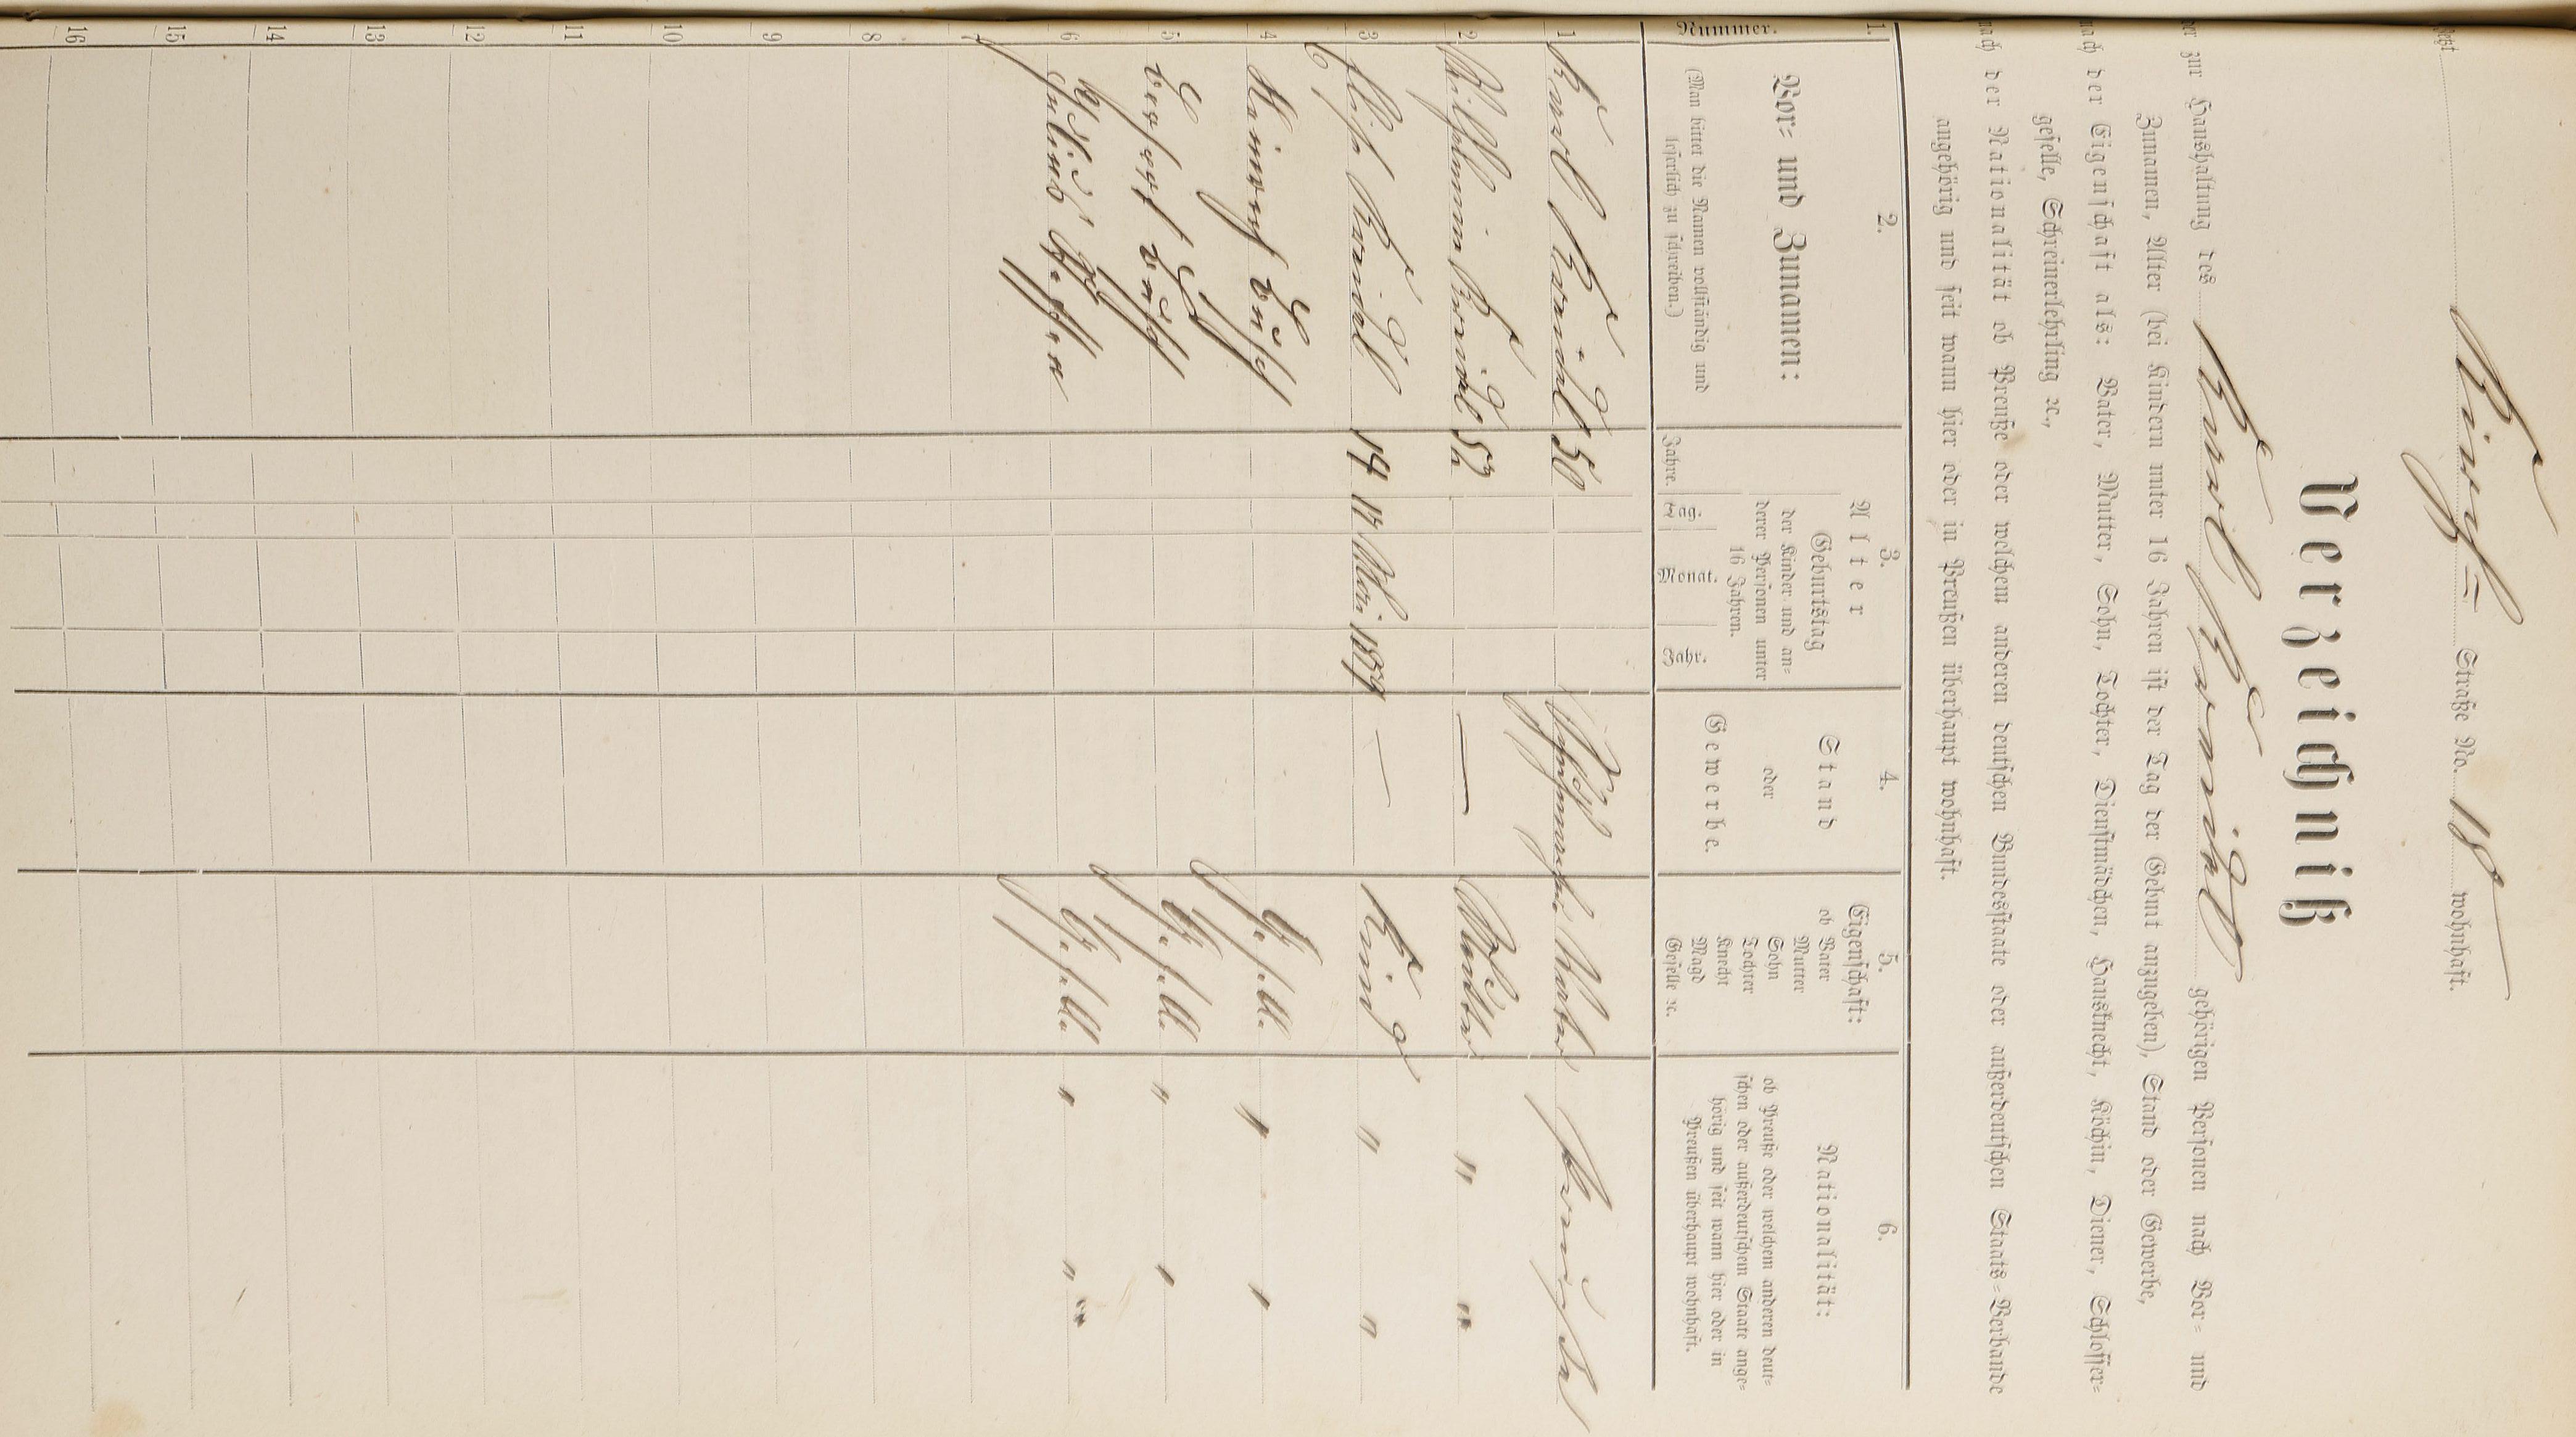 Jetzt Kirch= Straße No. 18 wohnhaft.
Verzeichniß
der zur Haushaltung des Karl Kreidel gehörigen Personen nach Vor= und
Zunamen, Alter (bei Kindern unter 16 Jahren ist der Tag der Geburt anzugeben), Stand oder Gewerbe,
nach der Eigenschaft als: Vater, Mutter, Sohn, Tochter, Dienstmädchen, Hausknecht, Köchin, Diener, Schlosser=
geselle, Schreinerlehrling ꝛc.,
nach der Nationalität ob Preuße oder welchem anderen deutschen Bundesstaate oder außerdeutschen Staats=Verbande
angehörig und seit wann hier oder in Preußen überhaupt wohnhaft.
1. 2. 3. 4. 5. 6.
Nummer.
Vor= und Zunamen:
(Man bittet die Namen vollständig und
leserlich zu schreiben.)
Alter
Geburtstag
der Kinder und an=
derer Personen unter
16 Jahren.
Jahre. Tag. Monat. Jahr.
Stand
oder
Gewerbe.
Eigenschaft:
ob Vater
Mutter
Sohn
Tochter
Knecht
Magd
Geselle ꝛc.
Nationalität:
ob Preuße oder welchem anderen deut=
schen oder außerdeutschem Staate ange=
hörig und seit wann hier oder in
Preußen überhaupt wohnhaft.
1 Karl Kreidel 50 Schuhmacher Vater
2 Wilhelmine Kreidel 52 — Mutter " "
3 Elise Kreidel 14 17 Mai 1859 — Kind " "
4 Heinrich Busch Geselle " "
5 Busch Geselle " "
6 Julius Geselle " "
7
8
9
10
11
12
13
14
15
16